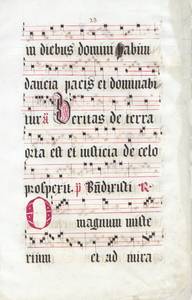 in diebus domini habūn
dancia pacis et dominabi
tur ā Veritas de terra
orta est et iusticia de celo
prospexit. p̄ Bn̄dixisti R
O magnum miste
rium et ad mira